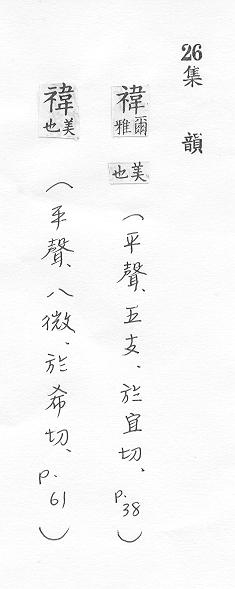 26集 韻
禕 爾雅 美也 (平聲、五支、於宜切、p.38)
禕 美也 (平聲、八微、於希切、p.61)